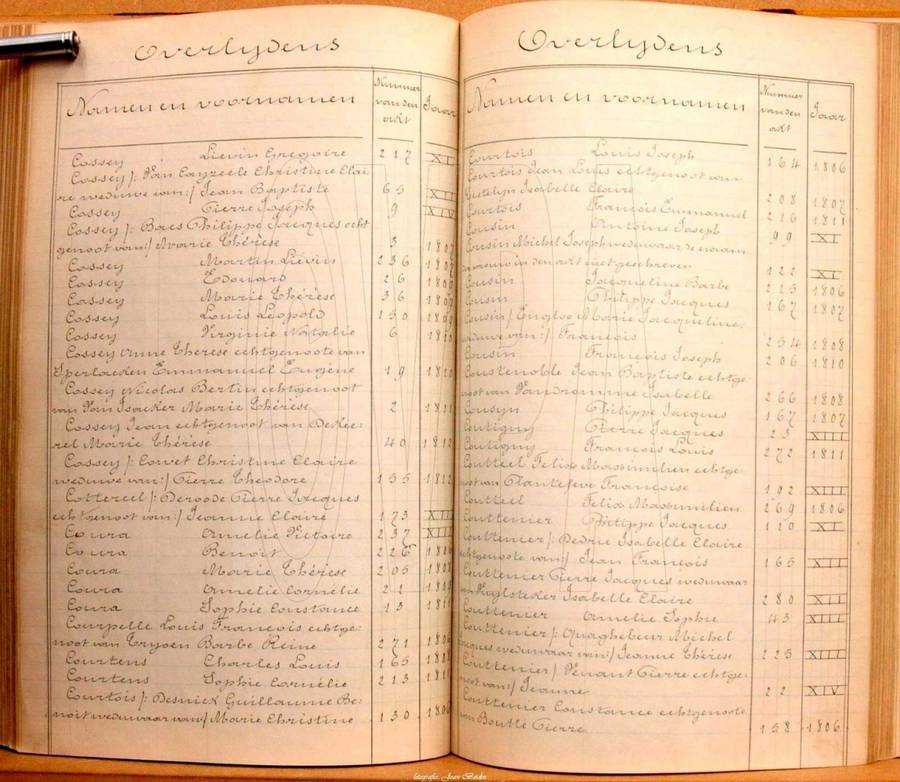 Overlydens
Namen en voornamen Nummer van den akt Jaar
Cossey Lievin Gregoire 217 XI
Cossey /: Van Cayzeele Christine Clai
re weduwe van :/ Jean Baptiste 65 XII
Cossey Pierre Joseph 9 XIV
Cossey /: Baes Philippe Jacques echt
genoot van :/ Marie Thérèse 3 1807
Cossey Martin Liévin 236 1807
Cossey Edouard 26
Cossey Marie Thérèse 36
Cossey Louis Léopold 130
Cossey Virginie Natalie 6 1810
Cossey Anne Therese echtgenoote van
Sperlaeden Emmanuel Eugène 19
Cossey Nicolas Bertin echtgenoot
van Van Isacker Marie Thérèse 2 1811
Cossey Jean echtgenoot van De Kee-
rel Marie Thérèse 40 1812
Cossey /: Cowet Christine Claire
weduwe van :/ Pierre Theodore 155 1812
Cottereel /: Deroode Pierre Jacques
echtgenoot van :/ Jeanne Claire 173
Coura Amelie Victoire 237
Coura Benoit 226
Coura Marie Thérèse 205
Coura Amelie Cornélie 21
Coura Sophie Constance 13
Courpelle Louis François echtge-
noot van Tryoen Barbe Reine 271
Courtens Charles Louis 165
Courtens Sophie Cornélie 213
Courtois /: Desnick Guillaume Be-
noit weduwaar van / Marie Christine 130
Overlydens
Namen en voornamen Nummer van den akt Jaar
Courtois Louis Joseph 164 1806
Courtois Jean Louis echtgenoot van
Isabelle Claire 208 1807
Courtois François Emmanuel 216 1811
Cousin Antoine Joseph 99 XI
Cousin Michel Joseph weduwaar de naam
in den akt niet geschreven 122 XI
Cousin Jacqueline Barbe 223 1806
Cousin Philippe Jacques 167 1807
Cousin / Marie Jacqueline
weduwe van :/ François 254 1808
Cousin François Joseph 206 1810
Coustenoble Jean Baptiste echtge-
noot van Vandromme Isabelle 266 1808
Cousyn Philippe Jacques 167 1807
Coutigny Pierre Jacques 25 XIII
Coutigny François Louis 272 1811
Coutteel Felix Maximilien echtge-
noot van Plantefeve Françoise 192 XIII
Coutteel Felix Maximilien 269 1806
Couttenier Philippe Jacques 110 XI
Couttenier /: Dedrie Isabelle Claire
echtgenoote van :/ Jean François 165 XII
Couttenier Pierre Jacques weduwaar
van Isabelle Claire 280 XII
Couttenier Amelie Sophie 43 XIII
Couttenier /: Quaghebeur Michel
Jacques weduwaar van :/ Jeanne Thérèse 223 XIII
Couttenier / Pierre echtge-
noot van :/ Jeanne 22 XIV
Couttenier Constance echtgenoote
van Boutte Pierre 158 1806
fotografie: Joan Baidin